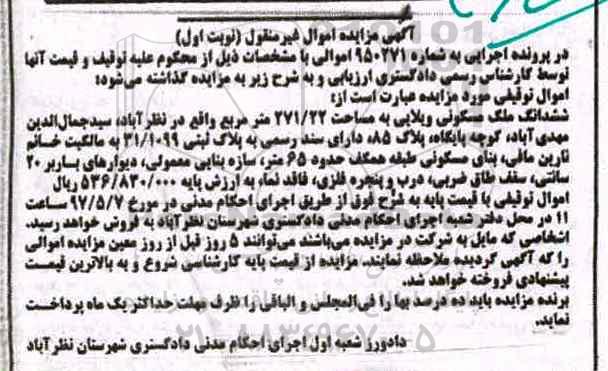 آگهی مزایده اموال غیرمنقول (نوبت اول)
در پرونده اجرایی به شماره ۹۵۰۲۷۱ اموالی با مشخصات ذیل از محکوم علیه توقیف و قیمت آنها
توسط کارشناس رسمی دادگستری ارزیابی و به شرح زیر به مزایده گذاشته می‌شود:
اموال توقیفی مورد مزایده عبارت است از:
ششدانگ ملک مسکونی ویلایی به مساحت ۲۷۱/۲۲ متر مربع واقع در نظرآباد، سیدجمال‌الدین
مهدی‌آباد، کوچه پایگاه، پلاک ۸۵، دارای سند رسمی به پلاک ثبتی ۳۱/۱۰۹۹ به مالکیت خانم
نارین مافی، بنای مسکونی طبقه همکف حدود ۶۵ متر، سازه بنایی معمولی، دیوارهای باربر ۲۰
سانتی، سقف طاق ضربی، درب و پنجره فلزی، فاقد نما، به ارزش پایه ۵۳۶/۸۳۰/۰۰۰ ریال
اموال توقیفی با قیمت پایه به شرح فوق از طریق اجرای احکام مدنی در مورخ ۹۷/۵/۷ ساعت
۱۱ در محل دفتر شعبه اجرای احکام مدنی دادگستری شهرستان نظرآباد به فروش خواهد رسید.
اشخاصی که مایل به شرکت در مزایده می‌باشند می‌توانند ۵ روز قبل از روز معین مزایده اموالی
را که آگهی گردیده ملاحظه نمایند. مزایده از قیمت پایه کارشناسی شروع و به بالاترین قیمت
پیشنهادی فروخته خواهد شد.
برنده مزایده باید ده درصد بها را فی‌المجلس و الباقی را ظرف مهلت حداکثر یک ماه پرداخت
نماید.
دادورز شعبه اول اجرای احکام مدنی دادگستری شهرستان نظرآباد